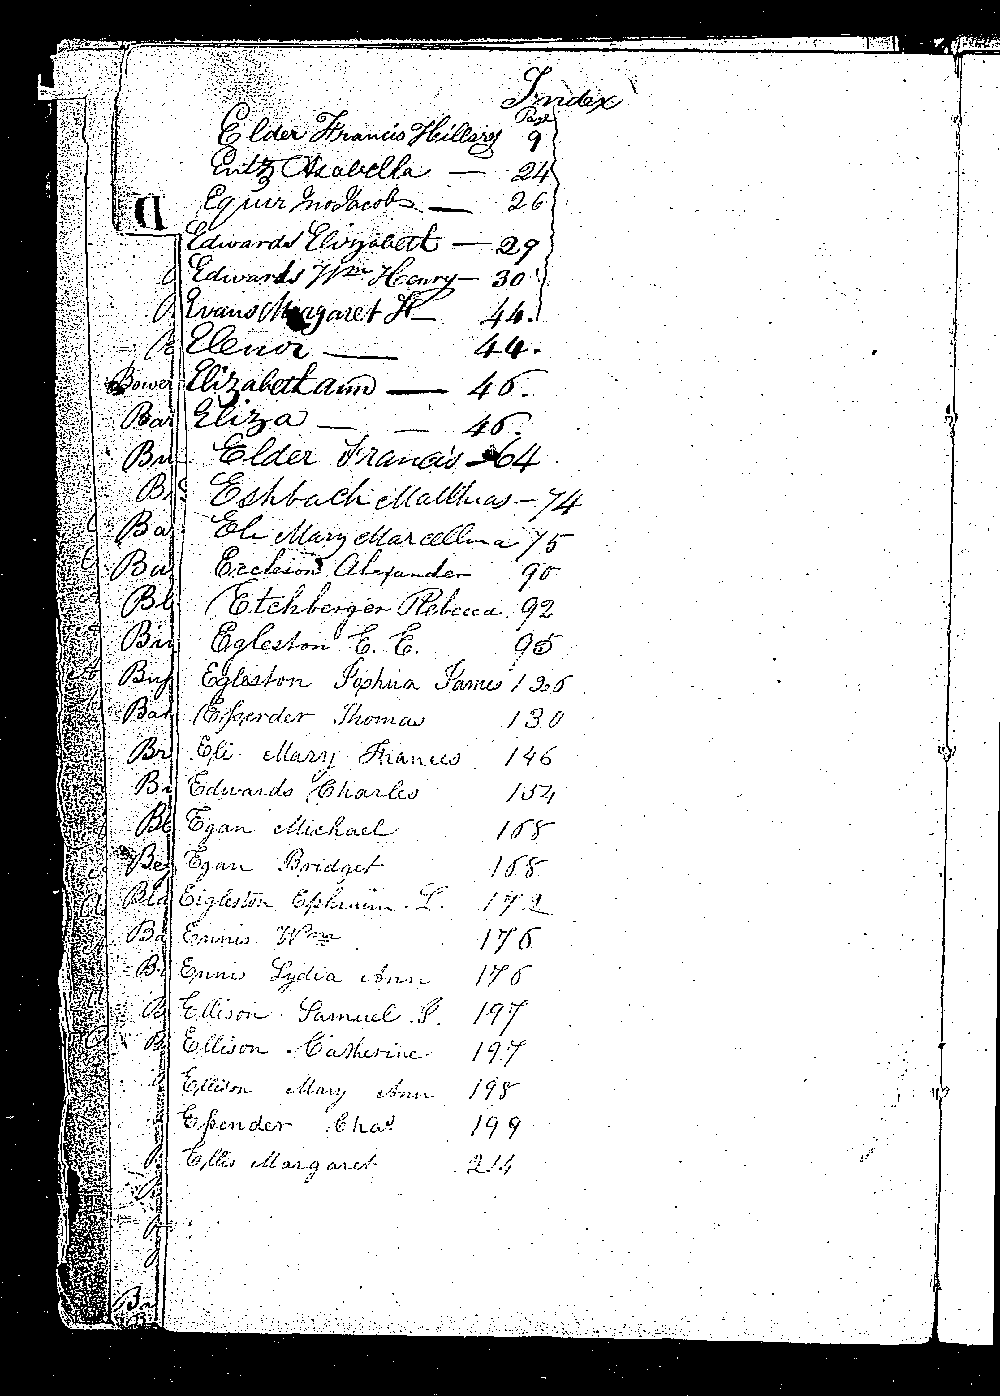 Index
Page
Elder Francis Hillary 9
Entz Isabella — 24
Equir Jno Jacob — 26
D
Edwards Elizabeth — 29
Edwards Wm Henry — 30
Evans Margaret H — 44.
Elenor — 44.
Bower Elizabeth ann — 46.
Bar Eliza — — 46.
Bru Elder Francis — 64
Eshbach Matthias — 74
Ba Eli Mary Marcellina 75
Bu Eccleson Alexander 90
Bl Etchberger Rebecca 92
Egleston E. E. 95
Egleston Joshua James 126
Bar Eſsender Thomas 130
Br Eli Mary Frances 146
Edwards Charles 154
Bl Egan Michael 168
Bey Egan Bridget 168
Bla Eigleston Ephraim L. 172
Ba Ennis Wm 176
Ennis Lydia Ann 176
Ellison Samuel P. 197
Ellison Catherine 197
Ellison Mary Ann 198
Eſsender Chas 199
Ellis Margaret 214